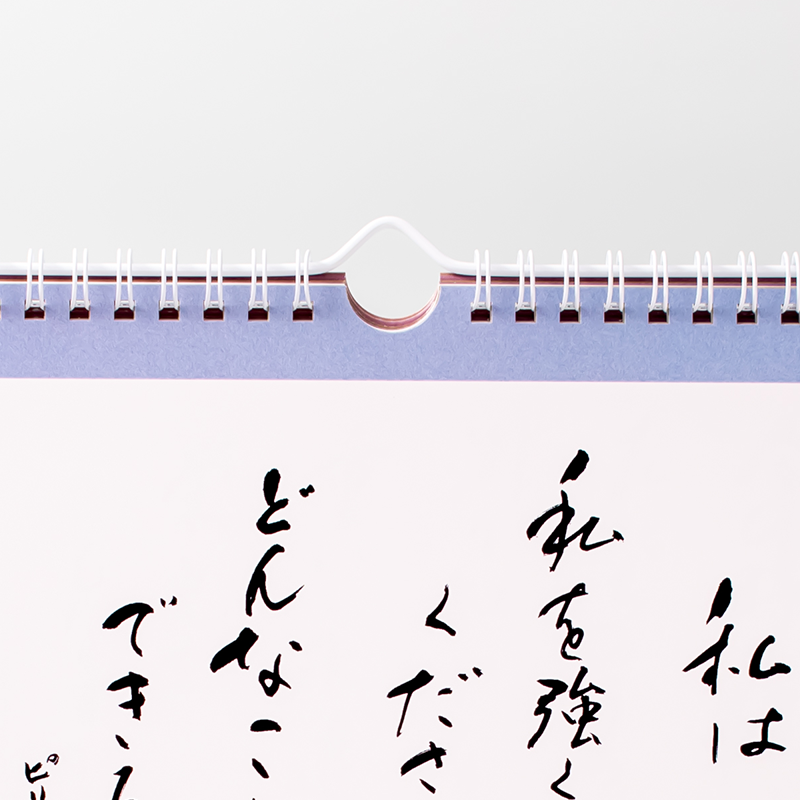 私は
私を強く
くださ
どんなこ
でき
ピリ